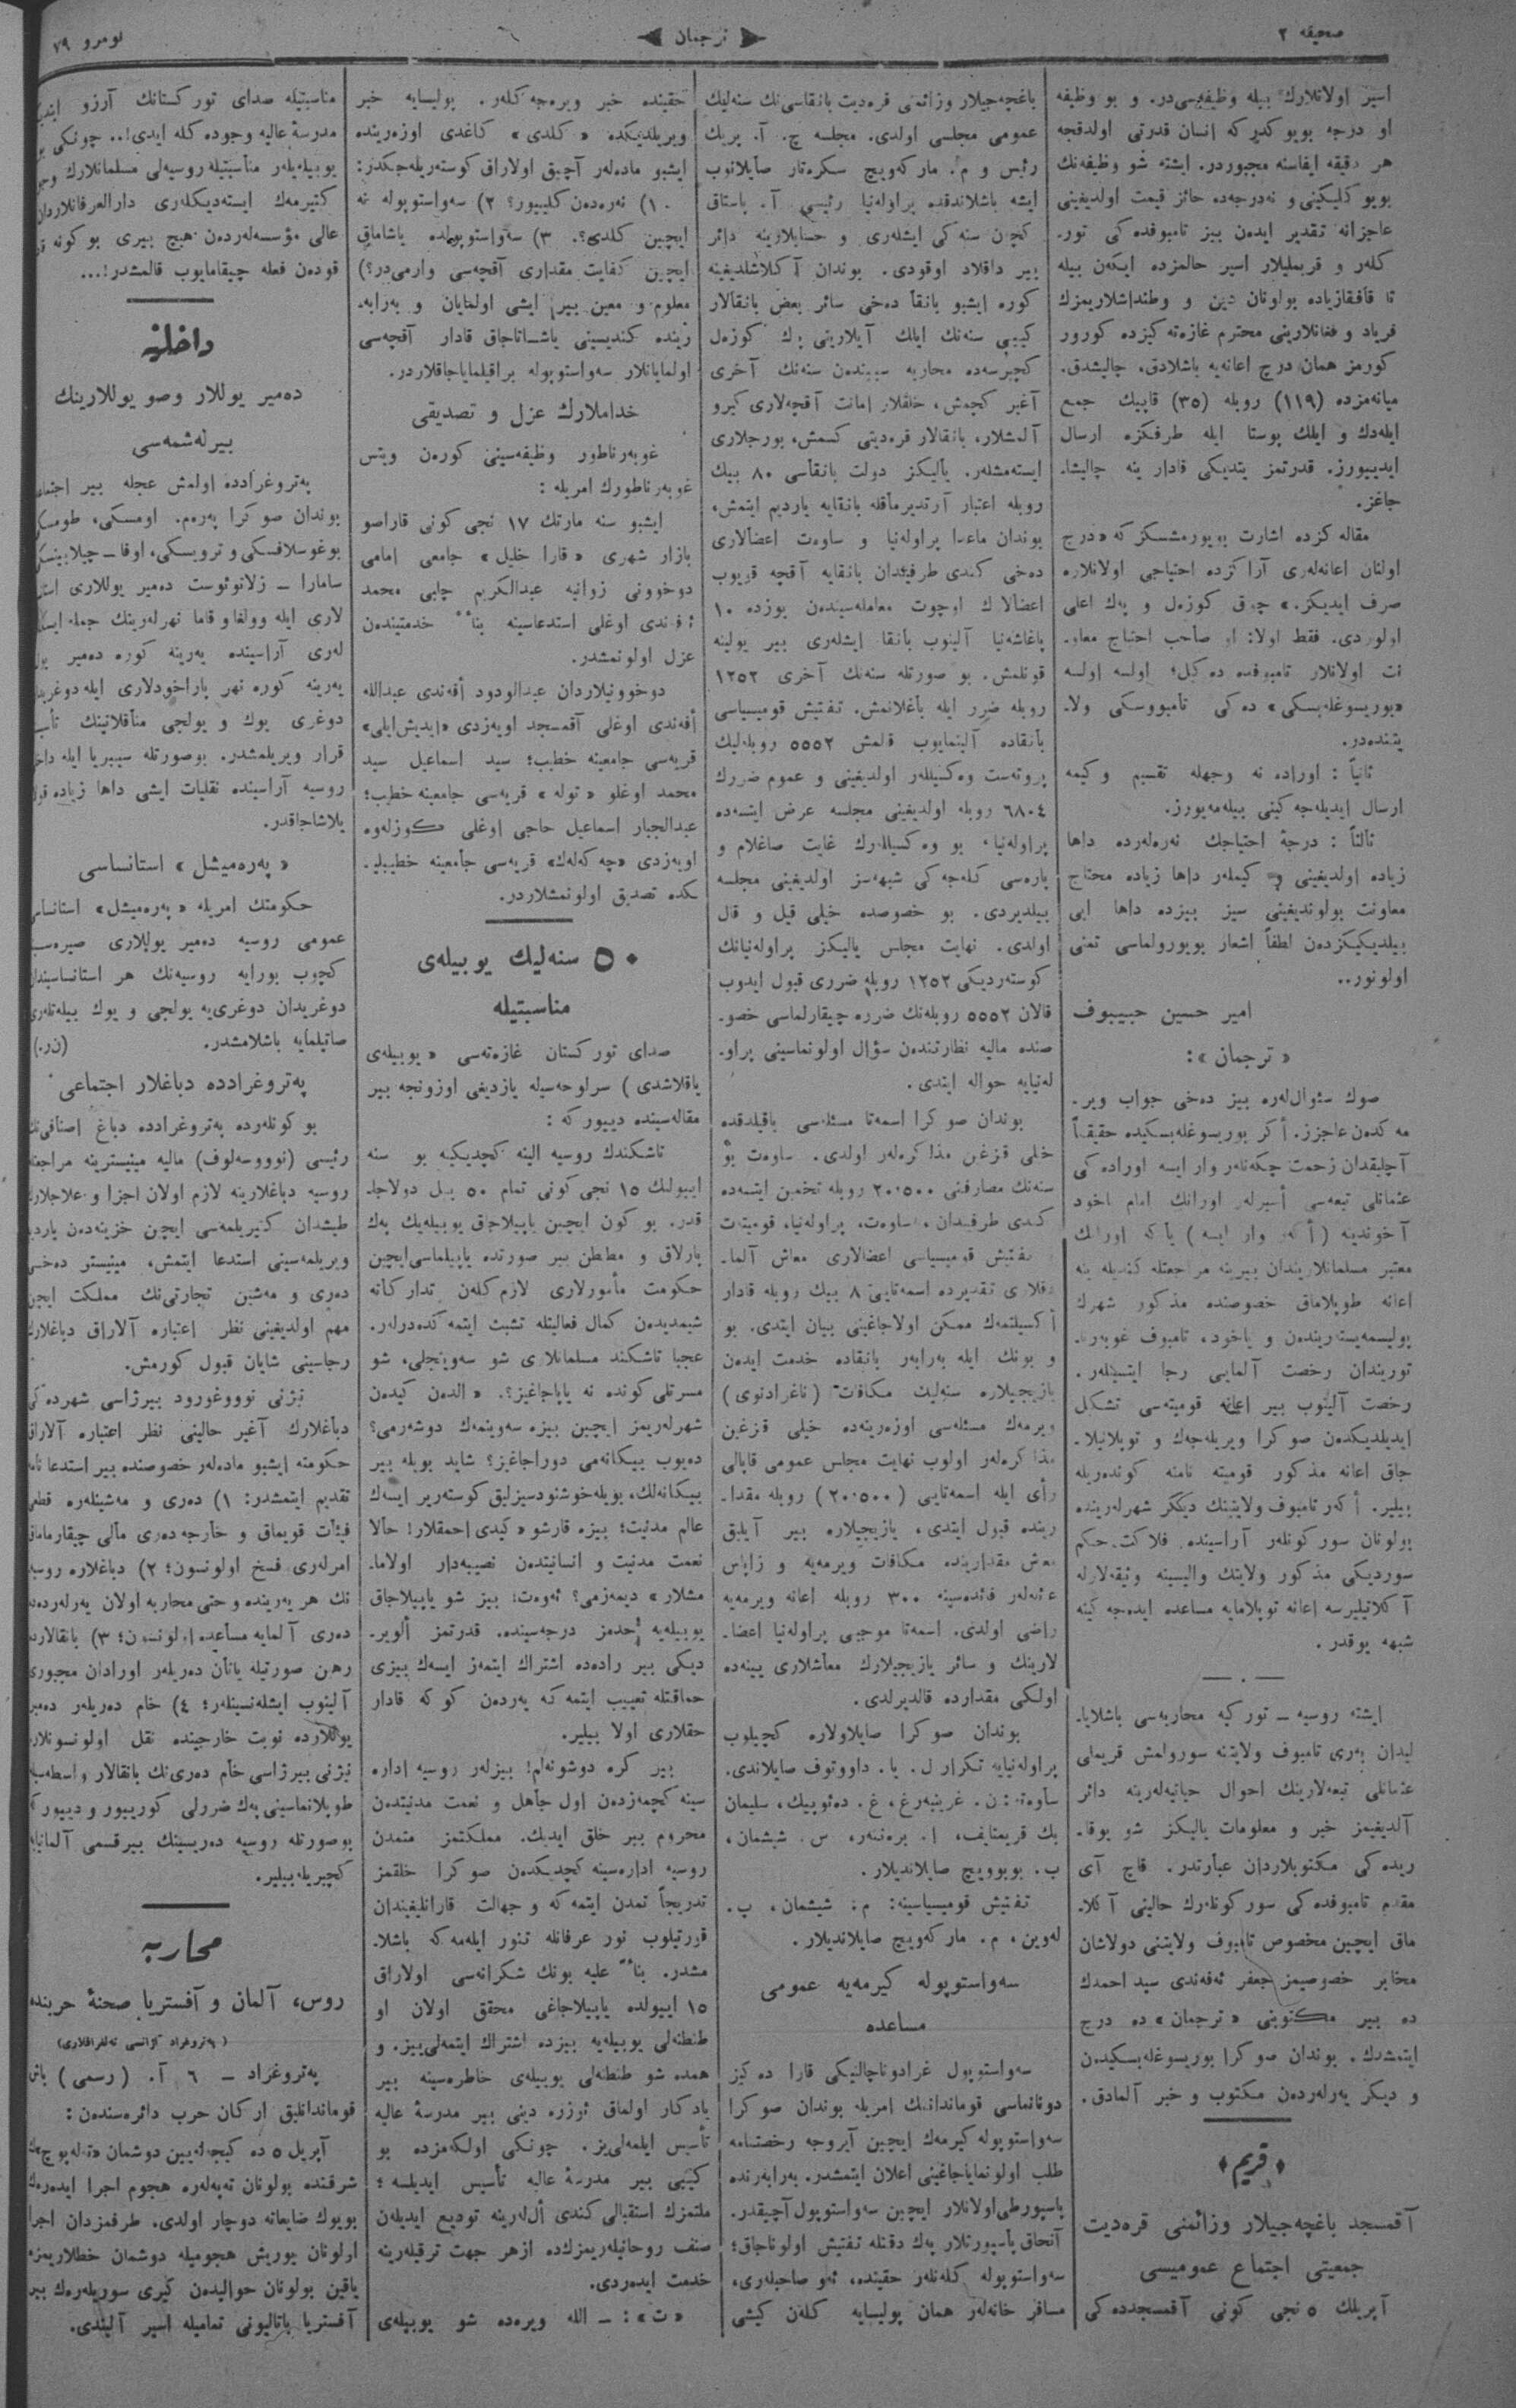 صحیفه ٢
ترجمان
نومرو ٧٩
اسیر اولانلارك بیله وظیفه‌سی‌در. و بو وظیفه
او درجه بویوكدر كه انسان قدرتی اولدقجه
هر دقیقه ایفاسنه مجبوردر. ایشته شو وظیفه‌نك
بویوكلیكینی و نه‌درجه‌ده حائز قیمت اولدیغینی
عاجزانه تقدیر ایدەن بیز تامبوفده‌كی تور-
كلەر و قریملیلار اسیر حالمزده ایكەن بیله
تا قافقازیاده بولونان دین و وطنداشلاریمزك
فریاد و فغانلارینی محترم غازەته‌كیزده كورور
كورمز همان درج اعانه‌یه باشلادق، چالیشدق.
میانه‌مزده (١١٩) روبله (٣٥) قاپیك جمع
ایله‌دك و ایلك پوستا ایله طرفكزه ارسال
ایدییورز. قدرتمز یتدیكی قادار ینه چالیشا-
جاغز.
مقاله‌كزده اشارت بویورمشسكز كه «درج
اولنان اعانه‌لەری آراكزده احتیاجی اولانلاره
صرف ایدیكز.» چوق كوزەل و پەك اعلی
اولوردی. فقط اولا: او صاحب احتیاج معاو-
نت اولانلار تامبوفده دەكیل؛ اولسه اولسه
«بوریسوغلەبسكی» دەكی تامبووسكی ولا-
یتنده‌در.
ثانیاً : اوراده نه وجهله تقسیم و كیمه
ارسال ایدیله‌جەكینی بیله‌مەیورز.
ثالثاً : درجهٔ احتیاجك نەرەلەرده داها
زیاده اولدیغینی و كیملەر داها زیاده محتاج
معاونت بولوندیغینی سیز بیزدە داها ایی
بیلدیكیكزدەن لطفاً اشعار بویورولماسی تمنی
اولونور..
امیر حسین حبیبوف
«ترجمان»:
صوك سئواللەره بیز دەخی جواب ویر-
مەكدەن عاجزز. أكر بوریسوغلەبسكیده حقیقتاً
آچلیقدان زحمت چكەنلەر وار ایسه اوراده‌كی
عثمانلی تبعه‌سی أسیرلەر اورانك امام یاخود
آخوندینه (أكر وار ایسه) یا كه اورانك
معتبر مسلمانلاریندان بیرینه مراجعتله كندیله ینه
اعانه طوپلاماق خصوصنده مذكور شهرك
پولیسمەیستەریندەن و یاخود، تامبوف غوبەرنا-
توریندان رخصت آلمایی رجا ایتسینلەر.
رخصت آلینوب بیر اعانه قومیته‌سی تشكل
ایدیلدیكدەن صوكرا ویریله‌جەك و توپلانیلا-
جاق اعانه مذكور قومیته نامنه كوندەریله
بیلیر. أكەر تامبوف ولایتینك دیگر شهرلەرینده
بولونان سوركونلەر آراسینده فلاكت حكم
سوردیكی مذكور ولایتك والیسینه وثیقه‌لارله
آكلاتیلیرسه اعانه توپلامایه مساعده ایدەجەكینه
شبهه یوقدر.
ایشته روسیه - توركیه محاربه‌سی باشلایا-
لیدان بەری تامبوف ولایتنه سورولمش قریملی
عثمانلی تبعه‌لارینك احوال حیاتیه‌لەرینه دائر
آلدیغیمز خبر و معلومات یالیكز شو یوقا-
ریده‌كی مكتوبلاردان عبارتدر. قاچ آی
مقدم تامبوفده‌كی سوركونلەرك حالینی آكلا-
ماق ایچین مخصوص تامبوف ولایتنی دولاشان
مخابر خصوصیمز جعفر ئەفەندی سید احمدك
ده بیر مكتوبنی «ترجمان» ده درج
ایتمشدك. بوندان صوكرا بوریسوغلەبسكیدەن
و دیكر یەرلەردەن مكتوب و خبر آلمادق.
﴿قریم﴾
آقمسجد باغچه‌جیلار وزائمنی قرەدیت
جمعیتی اجتماع عمومیسی
آپریلك ٥ نجی كونی آقمسجدده‌كی
باغچه‌جیلار وزائمنی قرەدیت بانقاسی‌نك سنه‌لیك
عمومی مجلسی اولدی. مجلسه چ. آ. بریك
رئیس و م. ماركەویچ سكرەتار صایلانوب
ایشه باشلاندقده پراولەنیا رئیسی آ. باستاق
كچن سنه‌كی ایشلەری و حسابلارینه دائر
بیر داقلاد اوقودی. بوندان آكلاشلدیغینه
كوره ایشبو بانقا دەخی سائر بعض بانقالار
كیبی سنه‌نك ایلك آیلارینی پك كوزەل
كچیرسه‌ده محاربه سببندەن سنه‌نك آخری
آغیر كچمش، خلقلار امانت آقچه‌لاری كیرو
آلمشلار، بانقالار قرەدیتی كسمش، بورجلاری
ایستەمشلەر. یالیكز دولت بانقاسی ٨٠ بیك
روبله اعتبار آرتدیرماقله بانقایه یاردیم ایتمش،
بوندان ماعدا پراولەنیا و ساوەت اعضالاری
دەخی كندی طرفلرندان بانقایه آقچه قویوب
اعضالاك اوچوت معامله‌سیندەن یوزده ١٠
یاغاشەنیا آلینوب بانقا ایشلەری بیر یولینه
قونلمش. بو صورتله سنه‌نك آخری ١٢٥٢
روبله ضرر ایله باغلانمش. تفتیش قومیسیاسی
بانقاده آلینمایوب قالمش ٥٥٥٢ روبله‌لیك
پروتەست وەكسیللەر اولدیغینی و عموم ضررك
٦٨٠٤ روبله اولدیغینی مجلسه عرض ایتسه‌ده
پراولەنیا، بو وەكسیللەرك غایت صاغلام و
پاره‌سی كله‌جەكی شبهه‌سز اولدیغینی مجلسه
بیلدیردی. بو خصوصده خیلی قیل و قال
اولدی. نهایت مجلس یالیكز پراولەنیانك
كوستەردیكی ١٢٥٢ روبله ضرری قبول ایدوب
قالان ٥٥٥٢ روبله‌نك ضرره چیقارلماسی خصو-
صنده مالیه نظارتندەن سؤال اولونماسینی پراو-
لەنیایه حواله ایتدی.
بوندان صوكرا اسمەتا مسئله‌سی باقیلدقده
خلی قزغین مذاكرەلەر اولدی. ساوەت بو
سنه‌نك مصارفنی ٢٠٫٥٠٠ روبله تخمین ایتمه‌ده
كندی طرفندان، ساوەت، پراولەنیا، قومیته
تفتیش قومیسیاسی اعضالاری معاش آلما-
دقلاری تقدیرده اسمەتایی ٨ بیك روبله قادار
أكسیلتمەك ممكن اولاجاغینی بیان ایتدی. بو
و بونك ایله بەرابەر بانقاده خدمت ایدەن
یازیجیلاره سنه‌لیك مكافات (ناغرادنوی)
ویرمەك مسئله‌سی اوزەرینه‌ده خیلی قزغین
مذاكرەلەر اولوب نهایت مجلس عمومی قاپالی
رأی ایله اسمەتایی (٢٠٫٥٠٠) روبله مقدا-
رینده قبول ایتدی، یازیجیلاره بیر آیلیق
معاش مقدارینده مكافات ویرمەیه و زاپاس
عائله‌لەر فائده‌سینه ٣٠٠ روبله اعانه ویرمەیه
راضی اولدی. اسمەتا موجبی پراولەنیا اعضا-
لارینك و سائر یازیجیلارك معاشلاری یینه‌ده
اولكی مقدارده قالدیرلدی.
بوندان صوكرا صایلاولاره كچیلوب
پراولەنیایه تكرار ل. یا. داووتوف صایلاندی.
ساوەته: ن. غرینبەرغ، غ. دەئوییك، سلیمان
بك قریمتایف، ا. برەننەر، س. شیشمان،
ب. بوبوویچ صایلاندیلار.
تفتیش قومیسیاسینه: م. شیشمان، پ.
لەوین، م. ماركەویچ صایلاندیلار.
سەواستوپوله كیرمەیه عمومی
مساعده
سەواستوپول غرادوناچالنیكی قارا دەكیز
دونانماسی قوماندانینك امریله بوندان صوكرا
سەواستوپوله كیرمەك ایچین آیروجه رخصتنامه
طلب اولونمایاجاغینی اعلان ایتمشدر. بەرابەرنده
پاسپورطی اولانلار ایچین سەواستوپول آچیقدر.
آنجاق پاسپورتلار پەك دقتله تفتیش اولوناجاق؛
سەواستوپوله كلەنلەر حقینده، ئەو صاحبلەری،
مسافر خانه‌لەر همان پولیسایه كلەن كیشی
حقینده خبر ویرەجەكلەر. پولیسایه خبر
ویریلدیكده «كلدی» كاغدی اوزەرینده
ایشبو مادەلەر آچیق اولاراق كوستەریله‌جكدر:
١) نەرەدەن كلییور؟ ٢) سەواستوپوله نه
ایچین كلدی؟. ٣) سەواستوپولده یاشاماق
ایچین كفایت مقداری آقچه‌سی وارمی‌در؟)
معلوم و معین بیر ایشی اولمایان و بەرابە-
رینده كندیسینی یاشاتاجاق قادار آقچه‌سی
اولمایانلار سەواستوپوله براقیلمایاجاقلاردر.
خداملارك عزل و تصدیقی
غوبەرناطور وظیفه‌سینی كورەن ویتس
غوبەرناطورك امریله:
ایشبو سنه مارتك ١٧ نجی كونی قاراصو
بازار شهری «قارا خلیل» جامعی امامی
دوخوونی زوانیه عبدالكریم چلبی محمد
ئەفندی اوغلی استدعاسینه بناءً خدمتیندەن
عزل اولونمشدر.
دوخوونیلاردان عبدالودود أفەندی عبدالله
أفەندی اوغلی آقمسجد اویەزدی «ایدیش‌ایلی»
قریه‌سی جامعینه خطیب؛ سید اسماعیل سید
محمد اوغلو «توله» قریه‌سی جامعینه خطیب؛
عبدالجبار اسماعیل حاجی اوغلی كوزلەوه
اویەزدی «چەكەلەك» قریه‌سی جامعینه خطیبلیـ
كده تصدیق اولونمشلاردر.
٥٠ سنه‌لیك یوبیله‌ی
مناسبتیله
صدای توركستان غازەته‌سی «یوبیله‌ی
یاقلاشدی) سرلوحه‌سیله یازدیغی اوزونجه بیر
مقاله‌سینده دییور كه:
تاشكندك روسیه الینه كچدیكینه بو سنه
اییولك ١٥ نجی كونی تمام ٥٠ ییل دولاجا-
قدر. بو كون ایچین یاپیلاجاق یوبیله‌یك پەك
پارلاق و مطنطن بیر صورتده یاپیلماسی‌ایچین
حكومت مأمورلاری لازم كلەن تداركاته
شیمدیدەن كمال فعالیتله تشبث ایتمەكده‌درلەر.
عجبا تاشكند مسلمانلاری شو سەوینجلی، شو
مسرتلی كونده نه یاپاجاغیز؟. «الدەن كیدەن
شهرلەریمز ایچین بیزه سەوینمەك دوشەرمی؟
دەیوب بیكانه‌می دوراجاغیز؟ شاید بویله بیر
بیكانه‌لك، بویله‌خوشنودسیزلیق كوستەریر ایسەك
عالم مدنیت؛ بیزه قارشو «كیدی احمقلار! حالا
نعمت مدنیت و انسانیتدەن نصیبه‌دار اولاما-
مشلار» دیمەزمی؟ ئەوەت؛ بیز شو یاپیلاجاق
یوبیله‌یه أحدمز درجه‌سینده. قدرتمز ألویر-
دیكی بیر راده‌ده اشتراك ایتمەز ایسەك بیزی
حماقتله تعییب ایتمەكه یەردەن كوكه قادار
حقلاری اولا بیلیر.
بیر كره دوشونه‌لم! بیزلەر روسیه اداره
سینه كچمەزدەن اول جاهل و نعمت مدنیتدەن
محروم بیر خلق ایدیك. مملكتمز متمدن
روسیه اداره‌سینه كچدیكدەن صوكرا خلقمز
تدریجاً تمدن ایتمەكه و جهالت قارانلیغیندان
قورتیلوب نور عرفانله تنور ایله‌مەكه باشلا-
مشدر. بناءً علیه بونك شكرانه‌سی اولاراق
١٥ اییولده یاپیلاجاغی محقق اولان او
طنطنه‌لی یوبیله‌یه بیزده اشتراك ایتمه‌لی‌ییز. و
همده شو طنطنه‌لی یوبیله‌ی خاطره‌سینه بیر
یادكار اولماق اوزره دینی بیر مدرسهٔ عالیه
تأسیس ایلمه‌لی‌یز. چونكی اولكه‌مزده بو
كیبی بیر مدرسهٔ عالیه تأسیس ایدیلسه؛
ملتمزك استقبالی كندی أل‌لەرینه تودیع ایدیلەن
صنف روحانیلەریمزكده ازهر جهت ترقیلەرینه
خدمت ایدەردی.
«ت»: - الله ویرەده شو یوبیله‌ی
مناسبتیله صدای توركستانك آرزو
مدرسهٔ عالیه وجوده كله ایدی!.. چونكی
یوبیله‌یلەر مناسبتیله روسیه‌لی مسلمانلارك
كتیرمەك ایستەدیكلەری دارالعرفانلاردان
عالی مؤسسه‌لەردەن هیچ بیری بو كونه
قوه‌دەن فعله چیقامایوب قالمشدر!...
داخلیه
دەمیر یوللار وصو یوللارینك
بیرلەشمه‌سی
پەتروغرادده اولمش عجله بیر
بوندان صوكرا پەرم. اومسكی، طومسكی
بوغوسلافسكی و ترویسكی، اوفا - چیلابینسكی
سامارا - زلاتوئوست دەمیر یوللاری
لاری ایله وولغا و قاما نهرلەرینك جمله
لەری آراسینده یەرینه كوره دەمیر
یەرینه كوره نهر پاراخودلاری ایله دوغریدان
دوغری یوك و یولجی مناقلاتینك
قرار ویریلمشدر. بوصورتله سیبیریا ایله
روسیه آراسینده نقلیات ایشی داها زیاده
یلاشاجاقدر.
«پەرەمیشل» استانساسی
حكومتك امریله «پەرەمیشل» استانساسی
عمومی روسیه دەمیر یوللاری
كچوب بورایه روسیه‌نك هر استانساسیندان
دوغریدان دوغری‌یه یولجی و یوك بیلەتلەری
صاتیلمایه باشلامشدر. (ن.ر.)
پەتروغرادده دباغلار اجتماعی
بو كونلەرده پەتروغرادده دباغ اصنافی‌نك
رئیسی (نووسەلوف) مالیه مینیسترینه مراجعتله
روسیه دباغلارینه لازم اولان اجزا و علاجلارك
طیشدان كتیریلمه‌سی ایچین خزینه‌دەن یاردم
ویریلمه‌سینی استدعا ایتمش، مینیستر دەخی
دەری و مەشین تجارتی‌نك مملكت ایچین
مهم اولدیغینی نظر اعتباره آلاراق دباغلارك
رجاسینی شایان قبول كورمش.
نیژنی نووغورود بیرژاسی شهرده‌كی
دباغلارك آغیر حالینی نظر اعتباره آلاراق
حكومته ایشبو مادەلەر خصوصنده بیر استدعا نامه
تقدیم ایتمشدر: ١) دەری و مەشینلەره قطعی
فیئات قویماق و خارجه دەری مالی چیقارماماق
امرلەری فسخ اولونسون؛ ٢) دباغلاره روسیه
نك هر یەرینده و حتی محاربه اولان یەرلەردەن
دەری آلمایه مساعده اولونسون؛ ٣) بانقالارده
رهن صورتیله یاتان دەریلەر اورادان مجبوری
آلینوب ایشلەنسینلەر؛ ٤) خام دەریلەر دەمیر
یوللارده نوبت خارجینده نقل اولونسونلار.
نیژنی بیرژاسی خام دەری‌نك بانقالار واسطه‌سیله
طوپلانماسینی پەك ضررلی كورییور و دییور كه
بوصورتله روسیه دەریسینك بیرقسمی آلمانیایه
كچیریله‌بیلیر.
محاربه
روس، آلمان و آفستریا صحنهٔ حربنده
(پەتروغراد آژانسی تەلغرافلاری)
پەتروغراد - ٦ آ. (رسمی) باش
قوماندانلیق اركان حرب دائره‌سندەن:
آپریل ٥ ده كیجه‌له‌یین دوشمان
شرقنده بولونان تەپه‌لەره هجوم اجرا ایدەرەك
بویوك ضایعاته دوچار اولدی. طرفمزدان اجرا
اولونان یوریش هجومیله دوشمان خطلاریمزه
یاقین بولونان حوالیدەن كیری سوریلەرەك بیر
آفستریا باتالیونی تمامیله اسیر آلیندی.